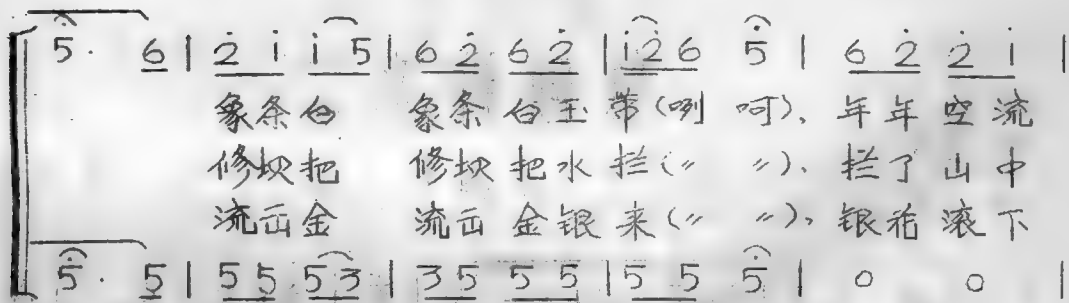 5̇· 6 | 2̇ i̇ i̇ 5 | 6 2̇ 6 2̇ | i̇ 2̇ 6 5̇ | 6 2̇ 2̇ i̇ |
象条白 象条白玉带(咧 呵)、年年空流
修坝把 修坝把水拦(〃 〃)、拦了山中
流出金 流出金银来(〃 〃)、银花滚下
5̇· 5 | 5 5 5 3 | 3 5 5 5 | 5 5 5̇ | 0 0 |